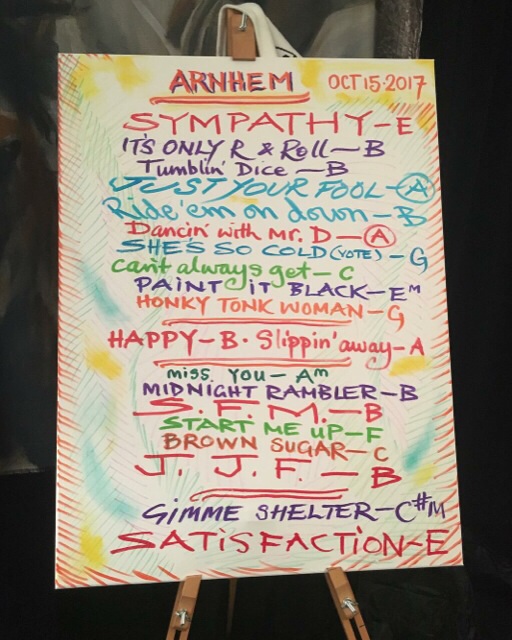 ARNHEM OCT 15·2017
SYMPATHY-E
IT'S ONLY R & Roll-B
Tumblin' Dice-B
JUST YOUR FOOL-A
Ride 'em on down-B
Dancin' with MR. D-A
SHE'S SO COLD (VOTE)-G
can't always get-C
PAINT IT BLACK-Em
HONKY TONK WOMAN-G
HAPPY-B· Slippin' away-A
miss YOU-Am
MIDNIGHT RAMBLER-B
S.F.M.-B
START ME UP-F
BROWN SUGAR-C
J. J. F.-B
GIMME SHELTER-C#M
SATiSFACTiON-E